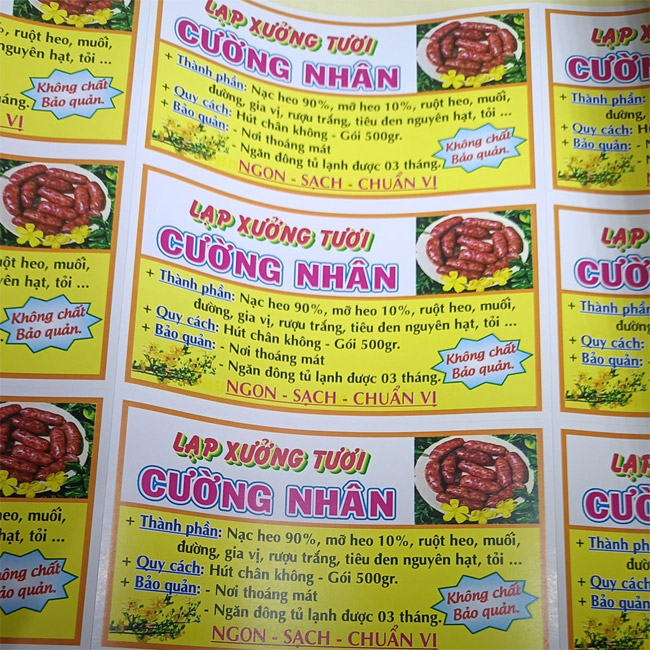 ruột heo, muối,
nguyên hạt, tỏi ...
Không chất
Bảo quản.
háng.
VỊ
ruột heo, muối,
yên hạt, tỏi ...
Không chất
Bảo quản.
heo, muối,
hạt, tỏi ...
ông chất
ảo quản.
LẠP XƯỞNG TƯƠI
CƯỜNG NHÂN
+ Thành phần: Nạc heo 90%, mỡ heo 10%, ruột heo, muối,
đường, gia vị, rượu trắng, tiêu đen nguyên hạt, tỏi ...
+ Quy cách: Hút chân không - Gói 500gr.
+ Bảo quản: - Nơi thoáng mát
- Ngăn đông tủ lạnh được 03 tháng.
Không chất
Bảo quản.
NGON - SẠCH - CHUẨN VỊ
LẠP XƯỞNG TƯƠI
CƯỜNG NHÂN
+ Thành phần: Nạc heo 90%, mỡ heo 10%, ruột heo, muối,
đường, gia vị, rượu trắng, tiêu đen nguyên hạt, tỏi ...
+ Quy cách: Hút chân không - Gói 500gr.
+ Bảo quản: - Nơi thoáng mát
- Ngăn đông tủ lạnh được 03 tháng.
Không chất
Bảo quản.
NGON - SẠCH - CHUẨN VỊ
LẠP XƯỞNG TƯƠI
CƯỜNG NHÂN
+ Thành phần: Nạc heo 90%, mỡ heo 10%, ruột heo, muối,
đường, gia vị, rượu trắng, tiêu đen nguyên hạt, tỏi ...
+ Quy cách: Hút chân không - Gói 500gr.
+ Bảo quản: - Nơi thoáng mát
- Ngăn đông tủ lạnh được 03 tháng.
Không chất
Bảo quản.
NGON - SẠCH - CHUẨN VỊ
LẠP X
CƯỜN
+ Thành phần:
đường,
+ Quy cách: H
+ Bảo quản: -
LẠP
CƯỜ
+ Thành phần:
đường
+ Quy cách:
+ Bảo quản: -
LẠP
CƯỜ
+ Thành phần
đường
+ Quy cách:
+ Bảo quản: